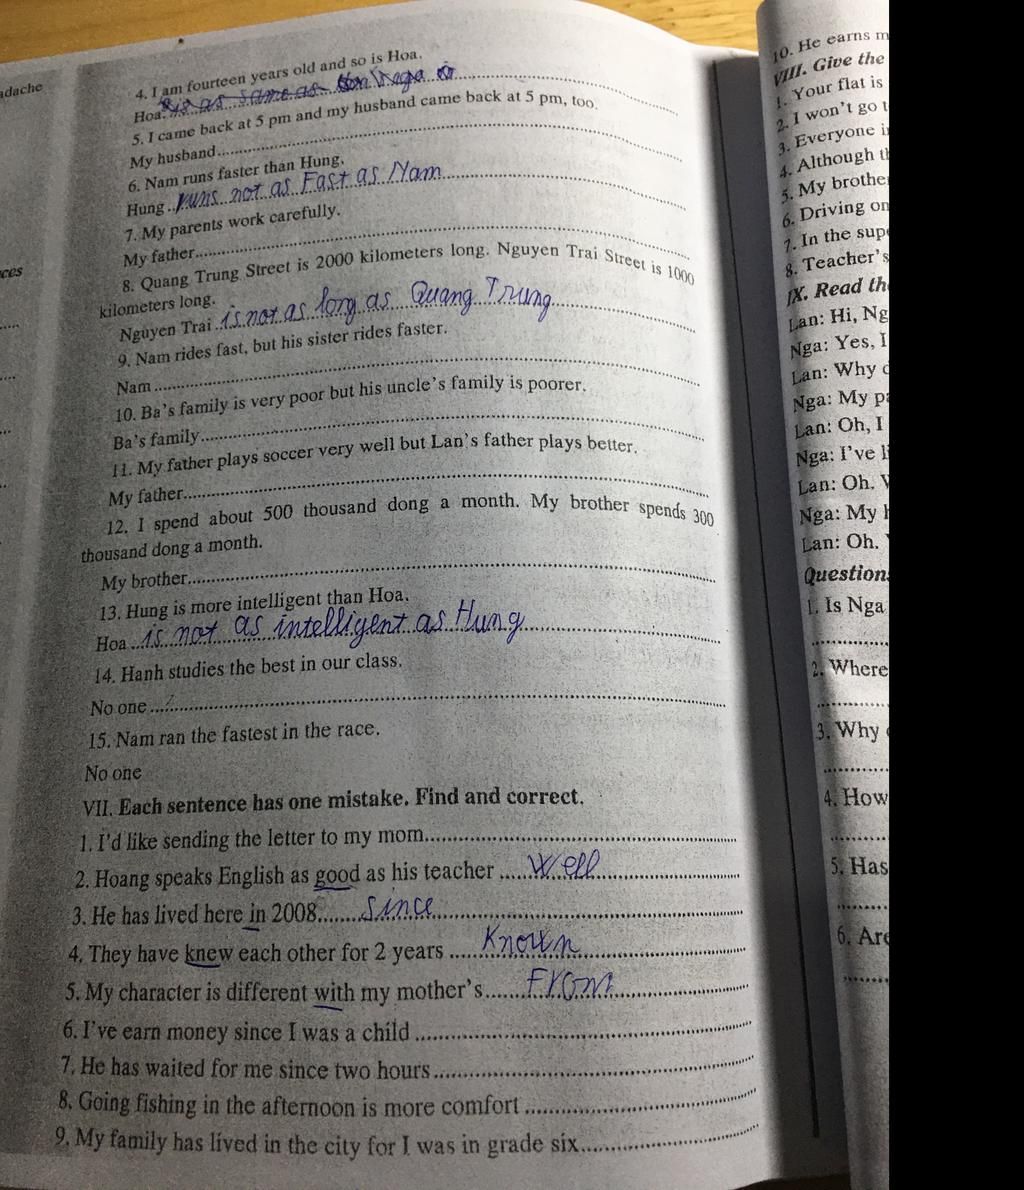 adache
ces
4. I am fourteen years old and so is Hoa.
Hoa
5. I came back at 5 pm and my husband came back at 5 pm, too.
My husband
6. Nam runs faster than Hung.
Hung runs not as Fast as Nam
7. My parents work carefully.
My father
8. Quang Trung Street is 2000 kilometers long. Nguyen Trai Street is 1000
kilometers long.
Nguyen Trai is not as long as Quang Trung
9. Nam rides fast, but his sister rides faster.
Nam
10. Ba's family is very poor but his uncle's family is poorer.
Ba's family
11. My father plays soccer very well but Lan's father plays better.
My father
12. I spend about 500 thousand dong a month. My brother spends 300
thousand dong a month.
My brother
13. Hung is more intelligent than Hoa.
Hoa is not as intelligent as Hung
14. Hanh studies the best in our class.
No one
15. Nam ran the fastest in the race.
No one
VII. Each sentence has one mistake. Find and correct.
1. I'd like sending the letter to my mom
2. Hoang speaks English as good as his teacher well
3. He has lived here in 2008 since
4. They have knew each other for 2 years Known
5. My character is different with my mother's From
6. I've earn money since I was a child
7. He has waited for me since two hours
8. Going fishing in the afternoon is more comfort
9. My family has lived in the city for I was in grade six
10. He earns m
VIII. Give the
1. Your flat is
2. I won't go t
3. Everyone i
4. Although th
5. My brothe
6. Driving on
7. In the sup
8. Teacher's
IX. Read th
Lan: Hi, Ng
Nga: Yes, I
Lan: Why
Nga: My pa
Lan: Oh, I
Nga: I've li
Lan: Oh.
Nga: My
Lan: Oh.
Question
1. Is Nga
2. Where
3. Why
4. How
5. Has
6. Are